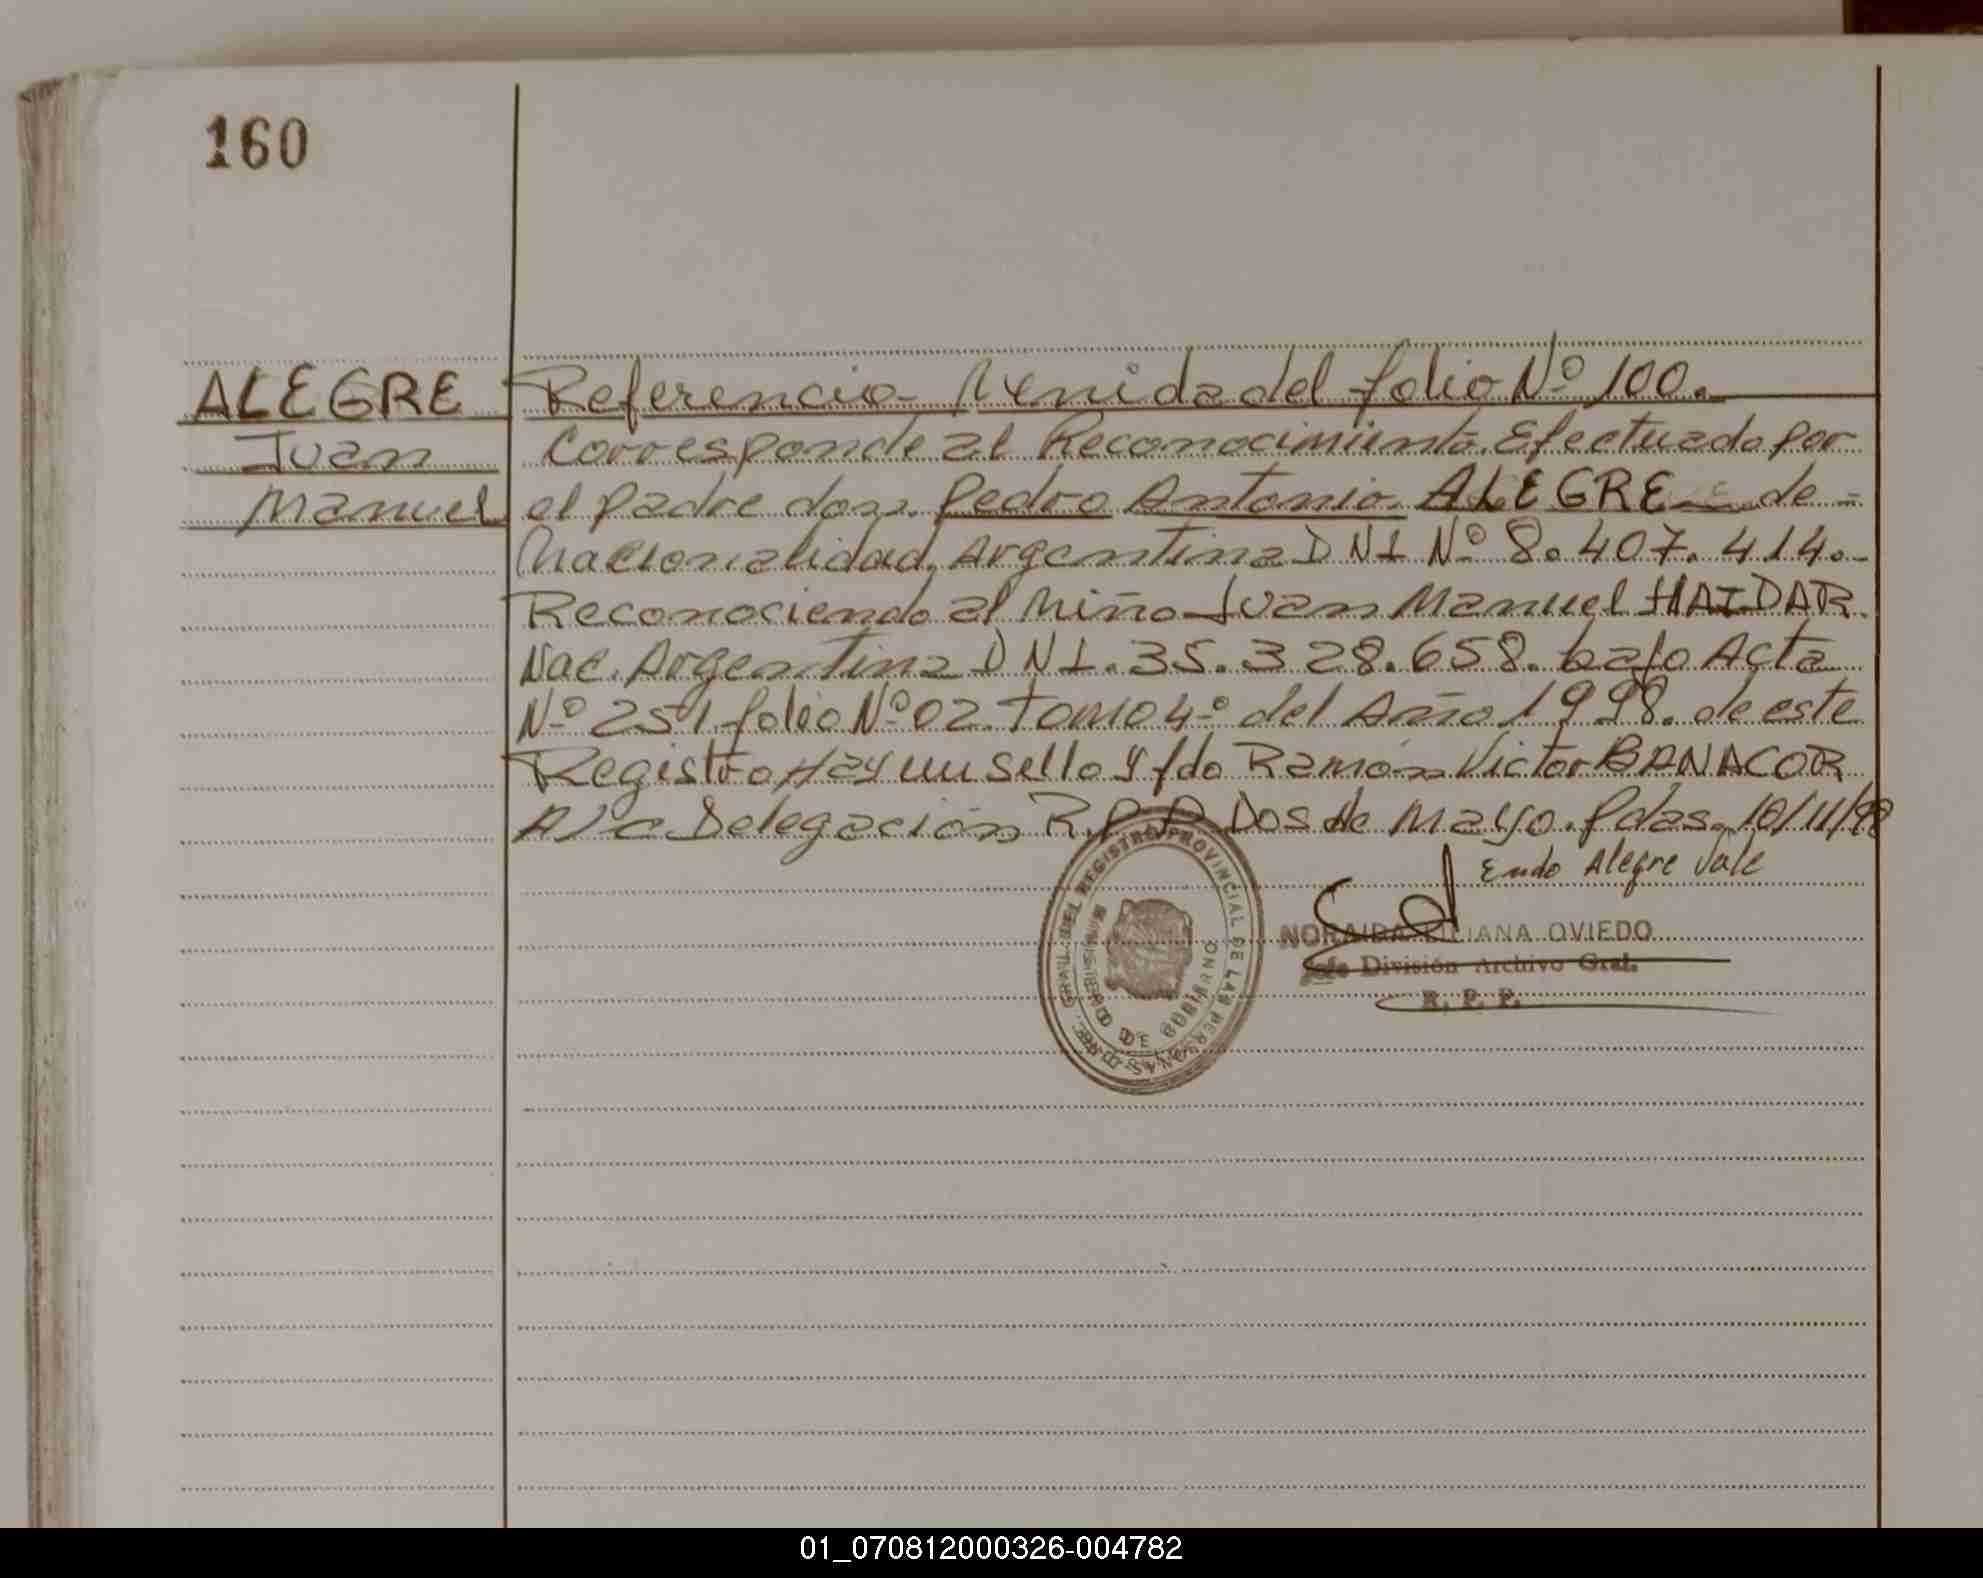 160
ALEGRE
Juan
Manuel
Referencia Venida del folio Nº 100.
Corresponde al Reconocimiento Efectuado por
el padre don. Pedro Antonio. ALEGRE de -
Nacionalidad Argentina DNI Nº 8.407.414.-
Reconociendo al Niño Juan Manuel HAIDAR
Nac. Argentina DNI. 35.328.658. bajo Acta
Nº 251 folio Nº 02 Tomo 4º del Año 1998. de este
Registro Hay un sello y fdo Ramón Victor BANACOR
A/C Delegación R.P.P Dos de Mayo. Pdas. 10/11/98
Endo Alegre Vale
NORAIDA LILIANA OVIEDO
Jefe División Archivo Gral.
R. P. P.
REGISTRO PROVINCIAL DE LAS PERSONAS
MINISTERIO DE GOBIERNO
01_070812000326-004782